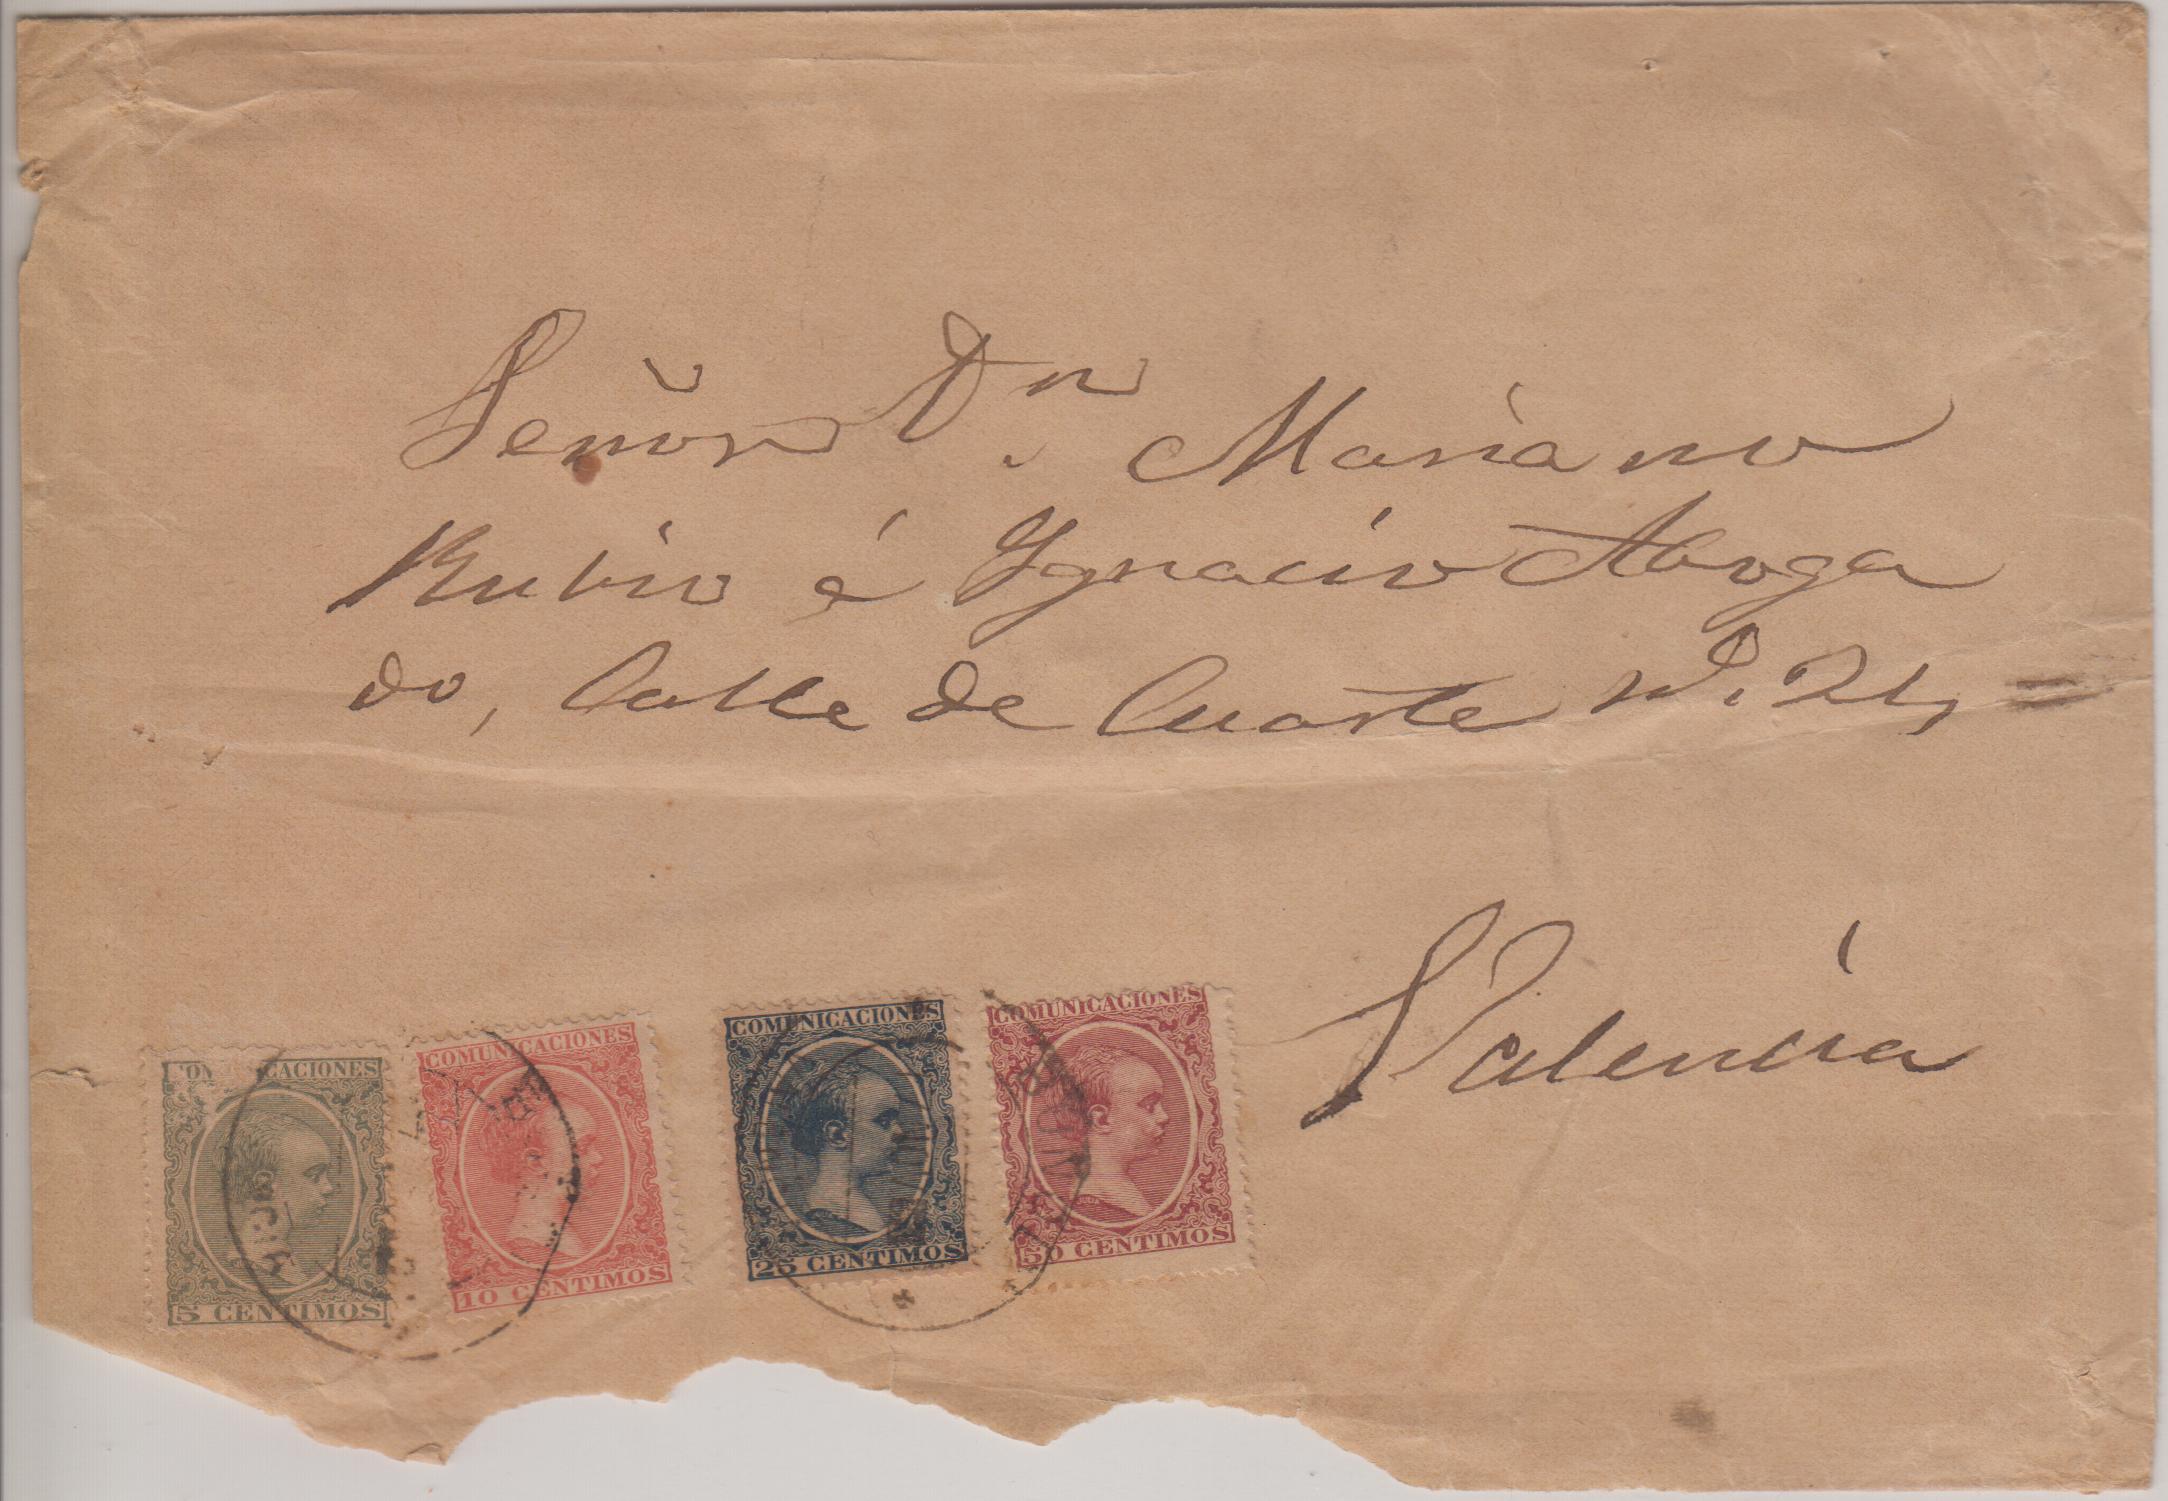 Señor Dn. Mariano
Rubio é Ygnacio Aboga
do, Calle de Cuarte nº. 21,
Valencia
COMUNICACIONES
5 CENTIMOS
COMUNICACIONES
10 CENTIMOS
COMUNICACIONES
25 CENTIMOS
COMUNICACIONES
50 CENTIMOS